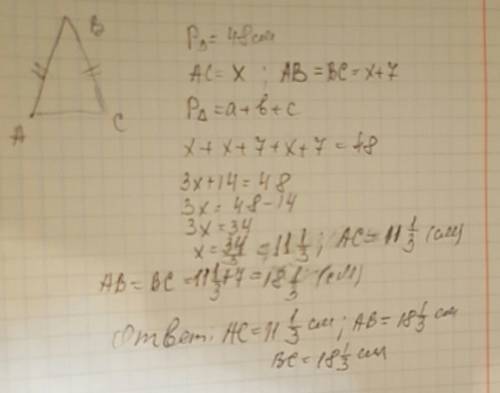 B
A
C
P∆ = 48 см
AC = x ; AB = BC = x+7
P∆ = a + b + c
x + x + 7 + x + 7 = 48
3x + 14 = 48
3x = 48 - 14
3x = 34
x = 34/3 = 11 1/3 ; AC = 11 1/3 (см)
AB = BC = 11 1/3 + 7 = 18 1/3 (см)
Ответ: AC = 11 1/3 см ; AB = 18 1/3 см
BC = 18 1/3 см